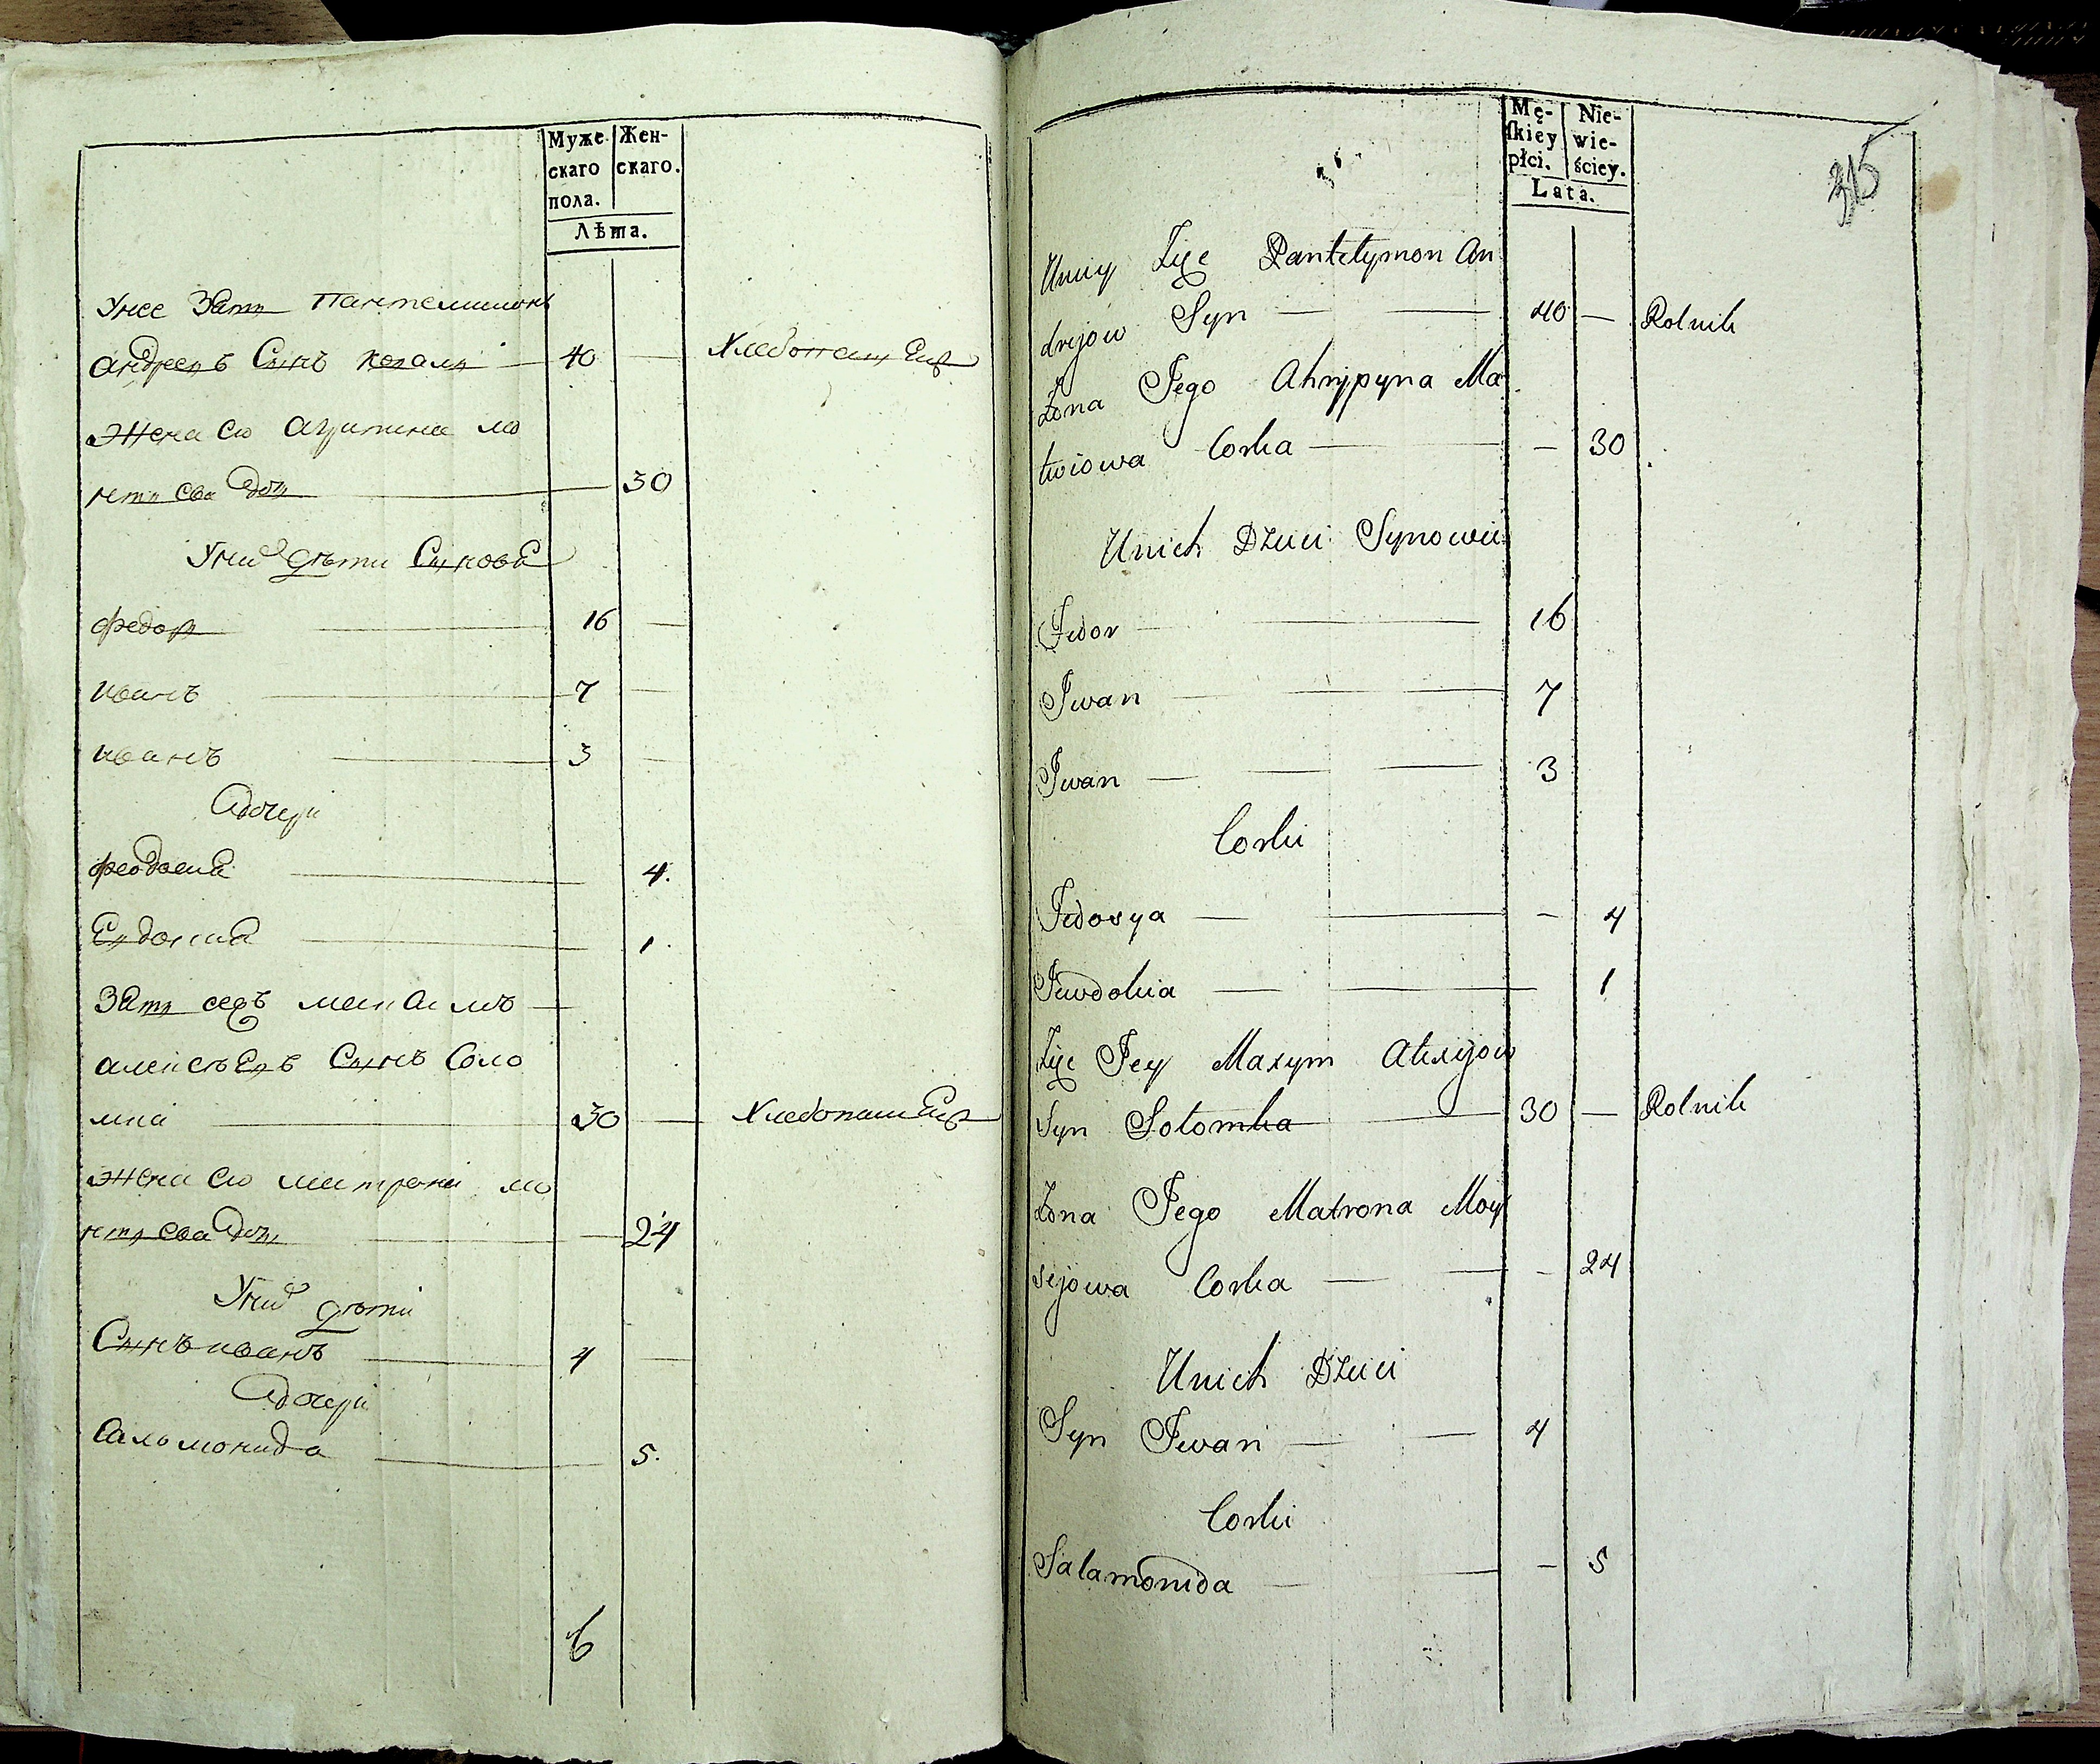 Муже
скаго
пола.
Жен-
скаго.
Лѣта.
Унее Зать Пантелимонъ
андреевъ Сынъ коваль 40 Хлебопашецъ
Жена его агрипина мо
сеева дочь 30
Унихъ дѣти Сыновя
федор 16
иванъ 7
иванъ 3
дочери
феодосия 4.
Евдокия 1.
Зать сеей максимъ
алексѣевъ Сынъ Соло
мка 30 Хлебопашецъ
Жена его матрона мо
сеева дочь 24
Унихъ дѣти
Сынъ иванъ 4
дочери
Саломонида 5.
6
Mę-
ſkiey
płci.
Nie-
wie-
ściey.
Lata.
315
Unieÿ Zięc Pantelymon An
drejow Syn 40 — Rolnik
Żona Jego Ahrypyna Ma
twiowa Corka — 30
Unich Dzieci Synowie
Fedor 16
Iwan 7
Iwan 3
Corki
Fedosya — 4
Iewdokia 1
Zięc Jey Maxym Alexijow
Syn Solomka 30 — Rolnik
Żona Jego Matrona Moy
sejowa Corka — 24
Unich Dzieci
Syn Iwan 4
Corki
Salamonida — 5